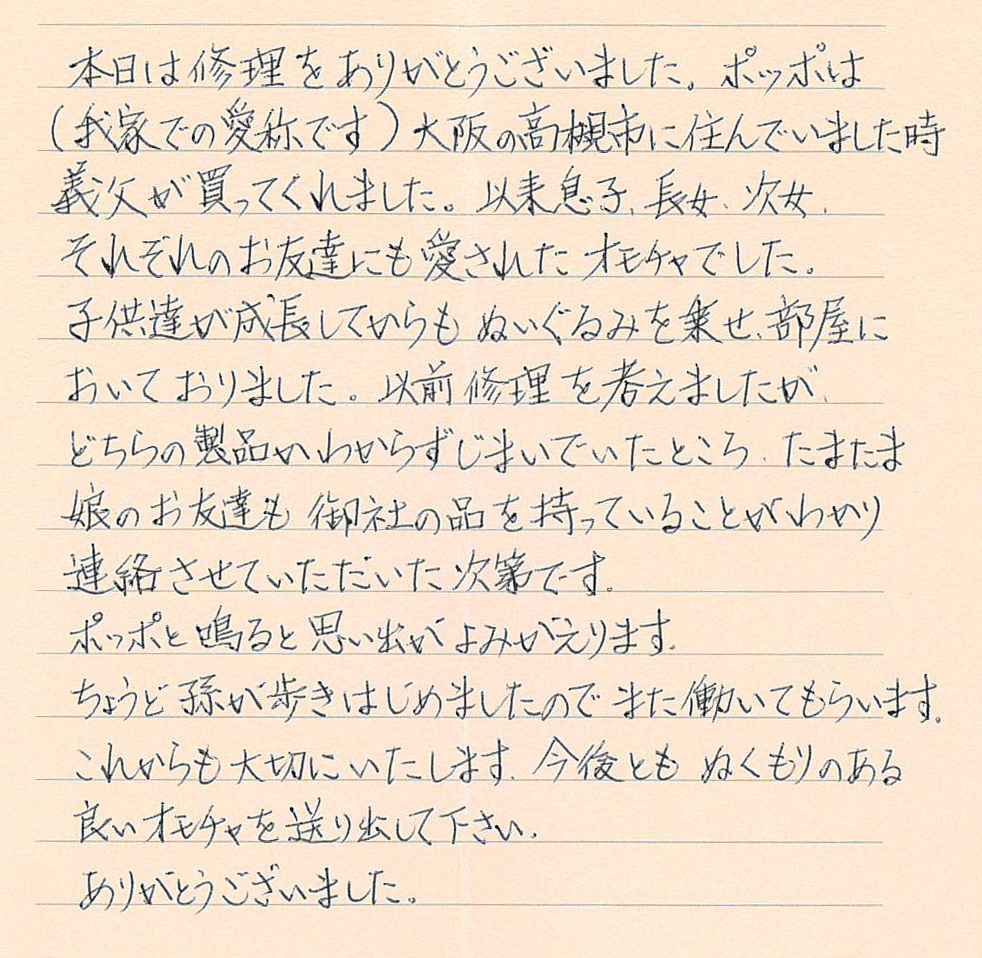 本日は修理をありがとうございました。ポッポは
(我家での愛称です)大阪の高槻市に住んでいました時
義父が買ってくれました。以来息子、長女、次女、
それぞれのお友達にも愛されたオモチャでした。
子供達が成長してからもぬいぐるみを乗せ、部屋に
おいておりました。以前修理を考えましたが、
どちらの製品かわからずじまいでいたところ、たまたま
娘のお友達も御社の品を持っていることがわかり
連絡させていただいた次第です。
ポッポと鳴ると思い出がよみがえります。
ちょうど孫が歩きはじめましたのでまた働いてもらいます。
これからも大切にいたします。今後ともぬくもりのある
良いオモチャを送り出して下さい。
ありがとうございました。